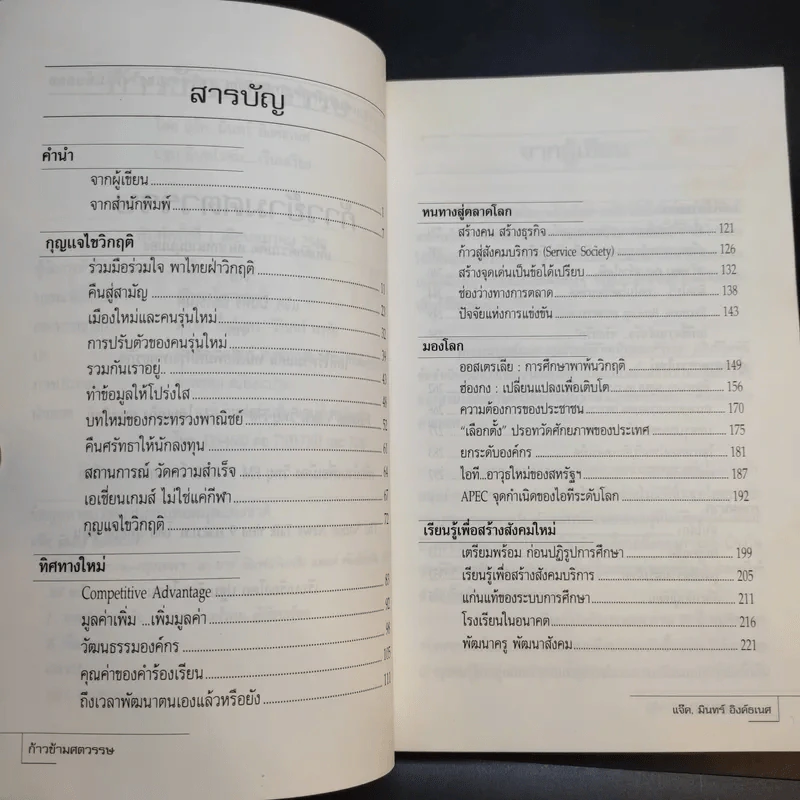 สารบัญ
คำนำ
จากผู้เขียน 1
จากสำนักพิมพ์ 7
กุญแจไขวิกฤติ
ร่วมมือร่วมใจ พาไทยฝ่าวิกฤติ 11
คืนสู่สามัญ 21
เมืองใหม่และคนรุ่นใหม่ 32
การปรับตัวของคนรุ่นใหม่ 39
รวมกันเราอยู่.. 43
ทำข้อมูลให้โปร่งใส 48
บทใหม่ของกระทรวงพาณิชย์ 52
คืนศรัทธาให้นักลงทุน 61
สถานการณ์ วัดความสำเร็จ 64
เอเชี่ยนเกมส์ ไม่ใช่แค่กีฬา 67
กุญแจไขวิกฤติ 72
ทิศทางใหม่
Competitive Advantage 81
มูลค่าเพิ่ม ...เพิ่มมูลค่า 92
วัฒนธรรมองค์กร 98
คุณค่าของคำร้องเรียน 105
ถึงเวลาพัฒนาตนเองแล้วหรือยัง 111
ก้าวข้ามศตวรรษ
หนทางสู่ตลาดโลก
สร้างคน สร้างธุรกิจ 121
ก้าวสู่สังคมบริการ (Service Society) 126
สร้างจุดเด่นเป็นข้อได้เปรียบ 132
ช่องว่างทางการตลาด 138
ปัจจัยแห่งการแข่งขัน 143
มองโลก
ออสเตรเลีย : การศึกษาพาพ้นวิกฤติ 149
ฮ่องกง : เปลี่ยนแปลงเพื่อเติบโต 156
ความต้องการของประชาชน 170
“เลือกตั้ง” ปรอทวัดศักยภาพของประเทศ 175
ยกระดับองค์กร 181
ไอที...อาวุธใหม่ของสหรัฐฯ 187
APEC จุดกำเนิดของไอทีระดับโลก 192
เรียนรู้เพื่อสร้างสังคมใหม่
เตรียมพร้อม ก่อนปฏิรูปการศึกษา 199
เรียนรู้เพื่อสร้างสังคมบริการ 205
แก่นแท้ของระบบการศึกษา 211
โรงเรียนในอนาคต 216
พัฒนาครู พัฒนาสังคม 221
แจ๊ค. มินทร์ อิงค์ธเนศ